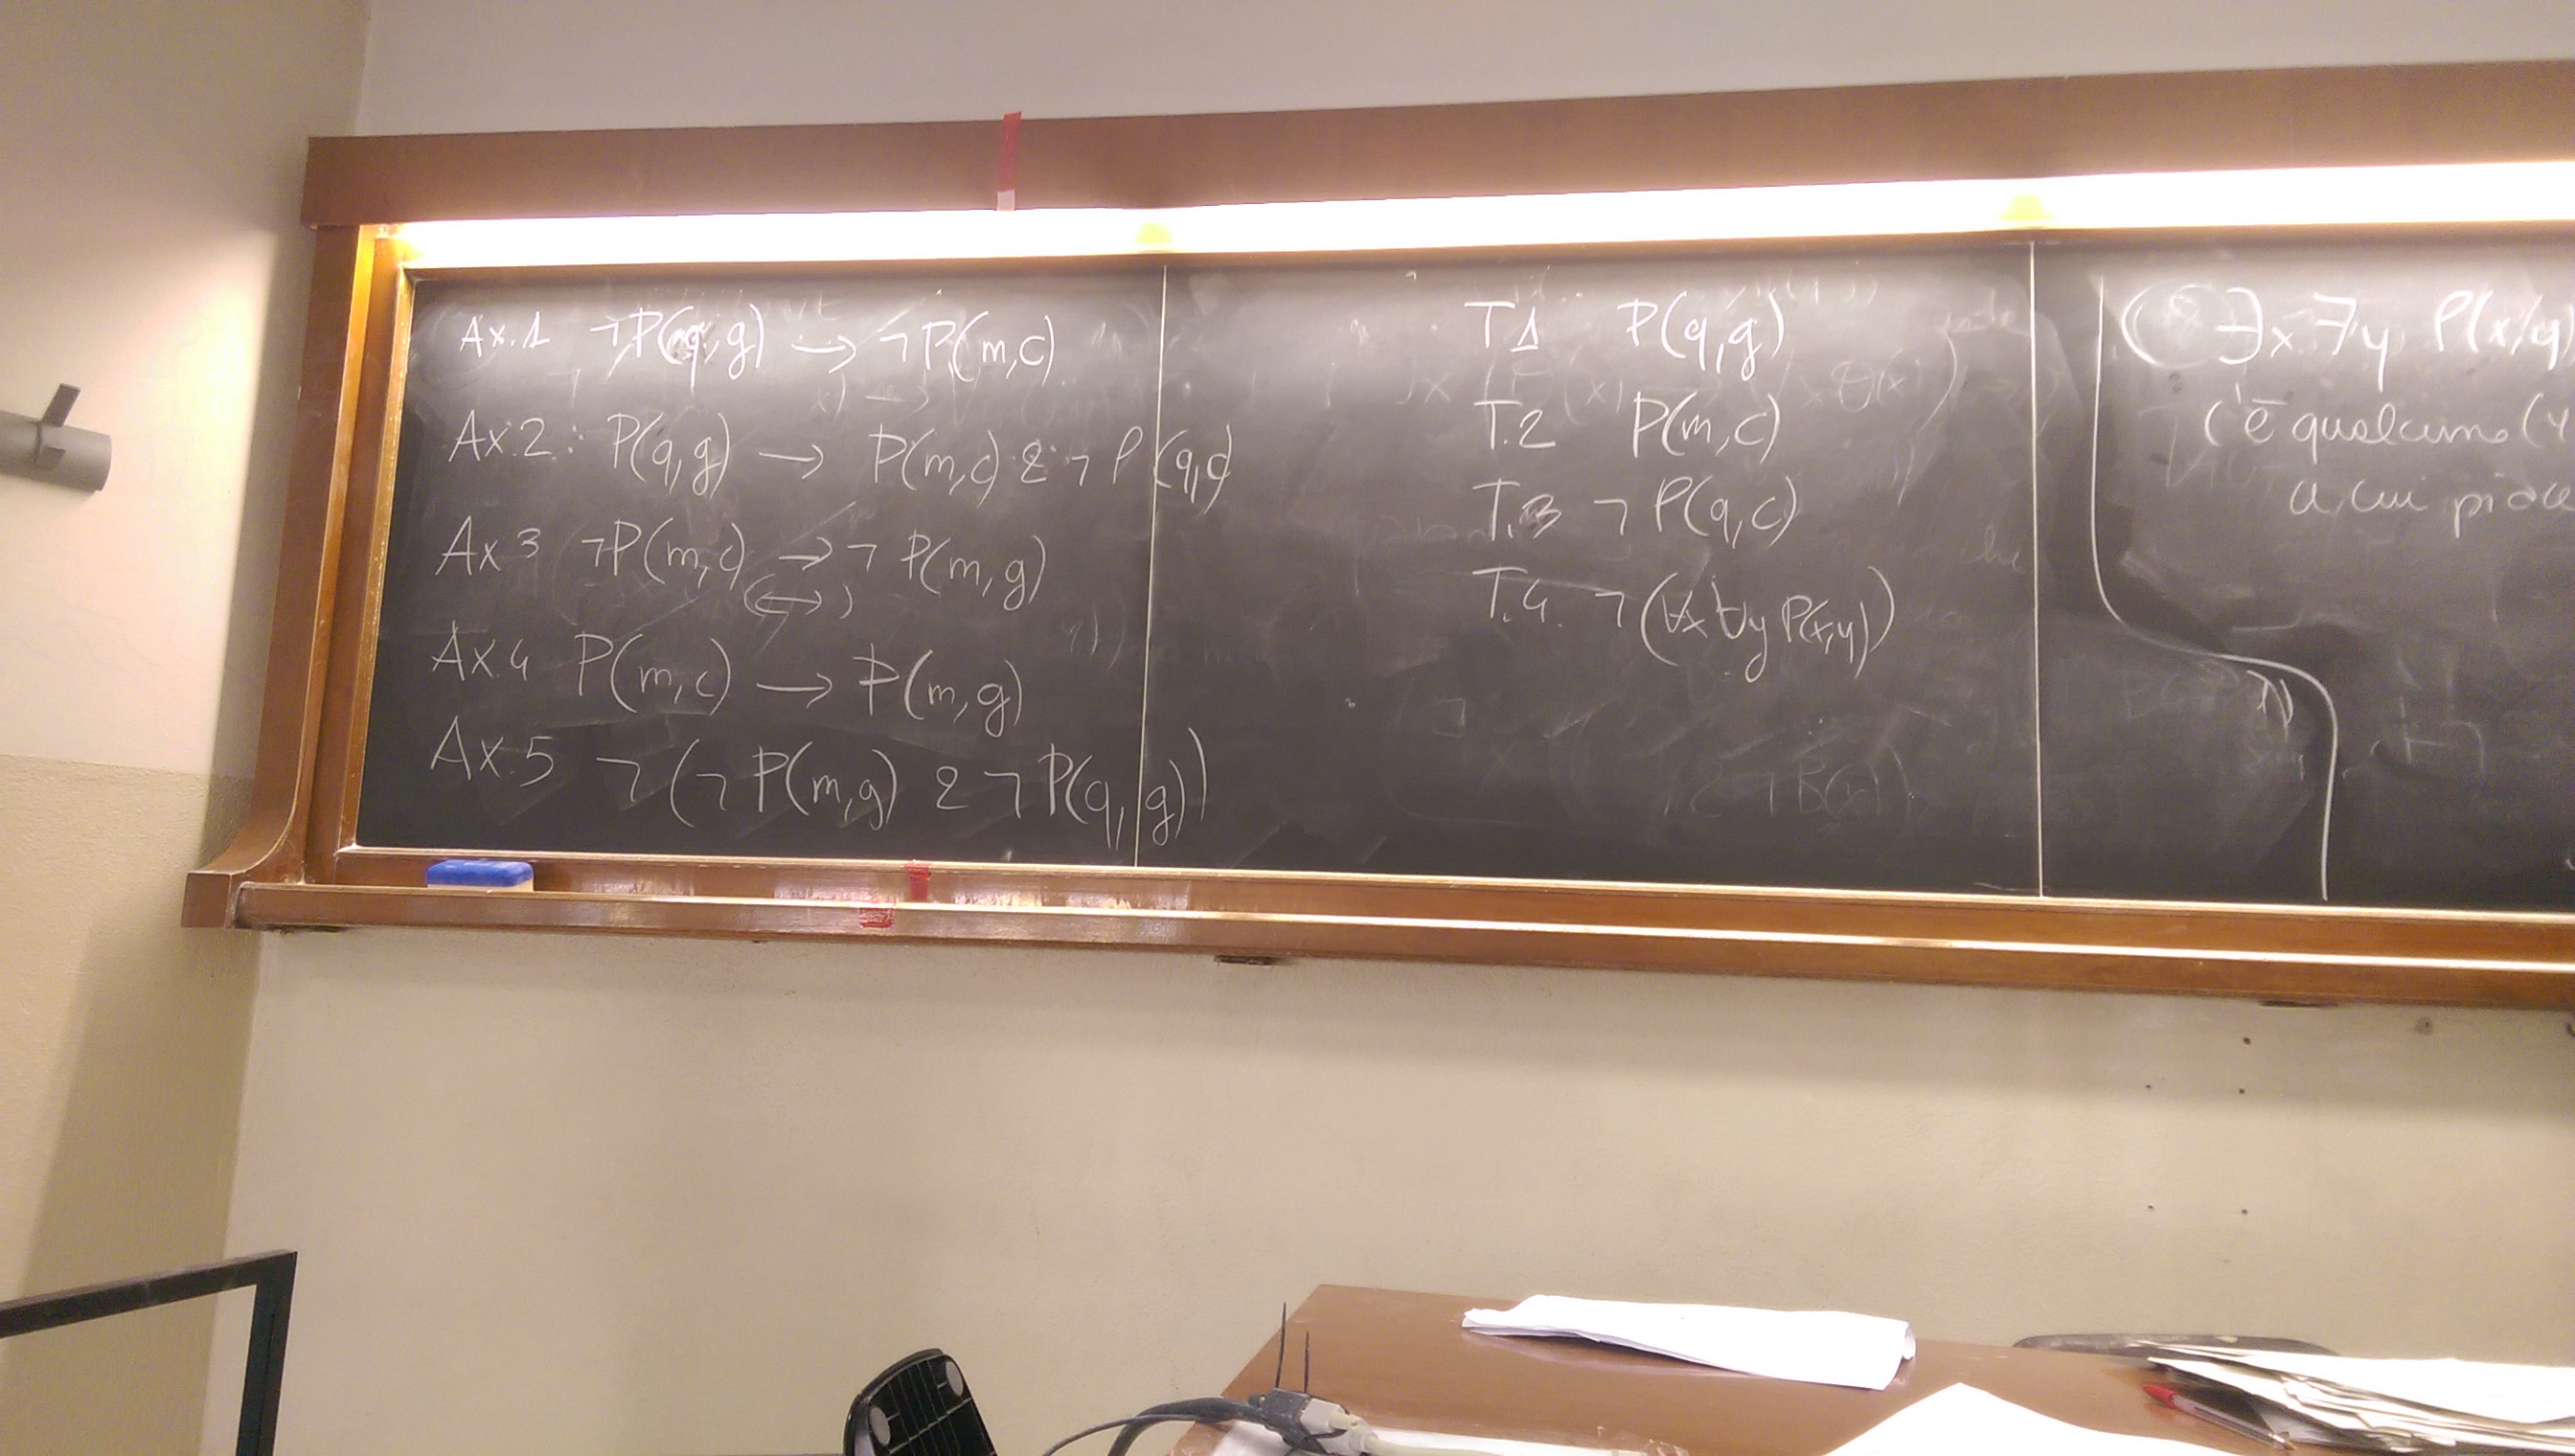 Ax.1 ¬P(q,g) → ¬P(m,c)
Ax.2: P(q,g) → P(m,c) & ¬P(q,c)
Ax 3 ¬P(m,c) → ¬P(m,g)
(↔)
Ax.4 P(m,c) → P(m,g)
Ax.5 ¬(¬P(m,g) & ¬P(q,g))
T1 P(q,g)
T.2 P(m,c)
T.3 ¬P(q,c)
T.4. ¬(∀x ∀y P(x,y))
∃x ∃y P(x,y
c'è qualcuno (y
a cui piace